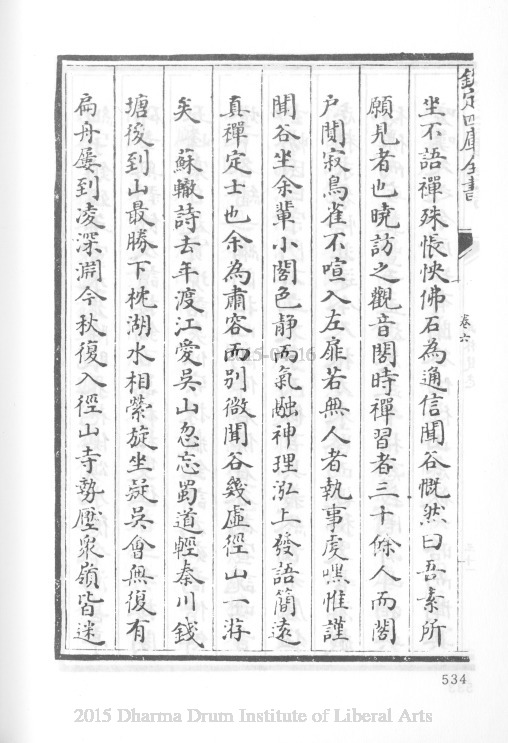 欽定四庫全書
卷六
坐不語禪殊悵怏佛石為通信聞谷慨然曰吾素所
願見者也曉訪之觀音閣時禪習者三十餘人而閣
戶閴寂鳥雀不喧入左扉若無人者執事虔嘿惟謹
聞谷坐余輩小閣色静而氣融神理泓上發語簡遠
真禪定士也余為肅容而別微聞谷幾虛徑山一游
矣 蘇轍詩去年渡江愛吳山忽忘蜀道輕秦川錢
塘後到山最勝下枕湖水相縈旋坐疑吳會無復有
扁舟屢到凌深淵今秋復入徑山寺勢壓衆嶺皆迷
534
2015 Dharma Drum Institute of Liberal Arts